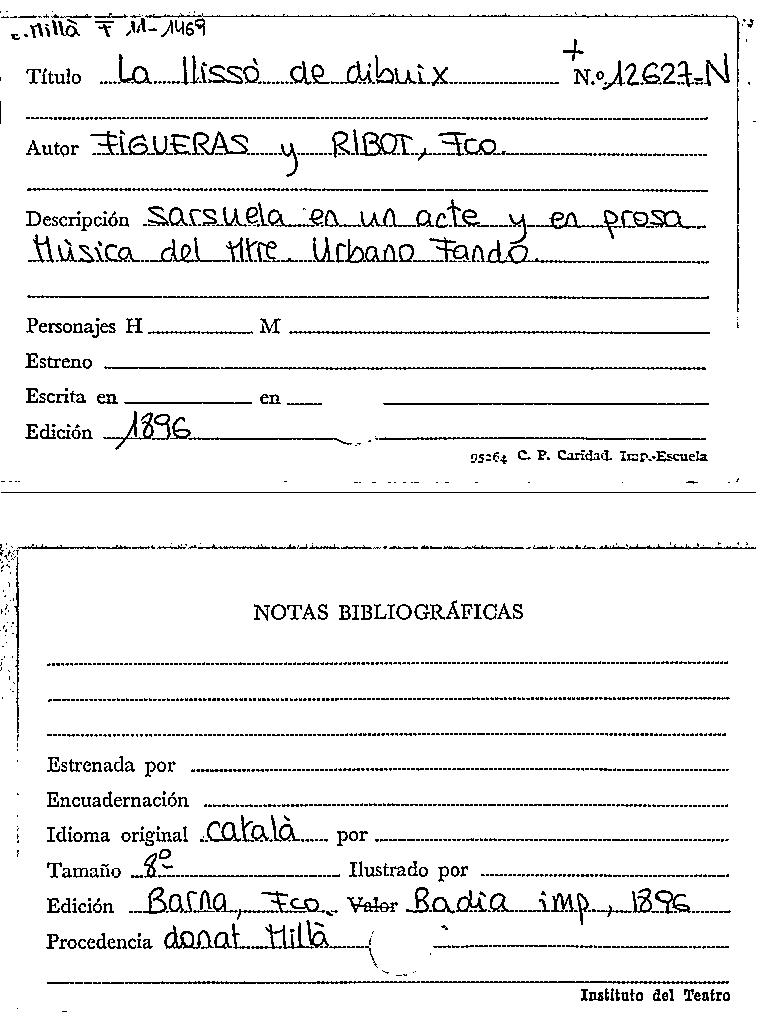 c. Millà F 11-1469
Título La llissó de dibuix N.º 12627-N
Autor FIGUERAS y RIBOT, Fco.
Descripción sarsuela en un acte y en prosa
Mùsica del Mtre. Urbano Fando
Personajes H M
Estreno
Escrita en en
Edición 1896
95264 C. P. Caridad. Imp.-Escuela
NOTAS BIBLIOGRÁFICAS
Estrenada por
Encuadernación
Idioma original català por
Tamaño 8º Ilustrado por
Edición Barna, Fco. Valor Badia imp, 1896
Procedencia donat Millà
Instituto del Teatro